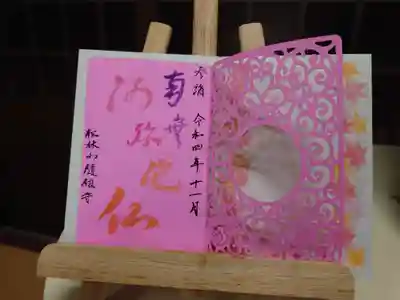 参詣 令和四年十一月
南無
阿弥陀仏
松林山